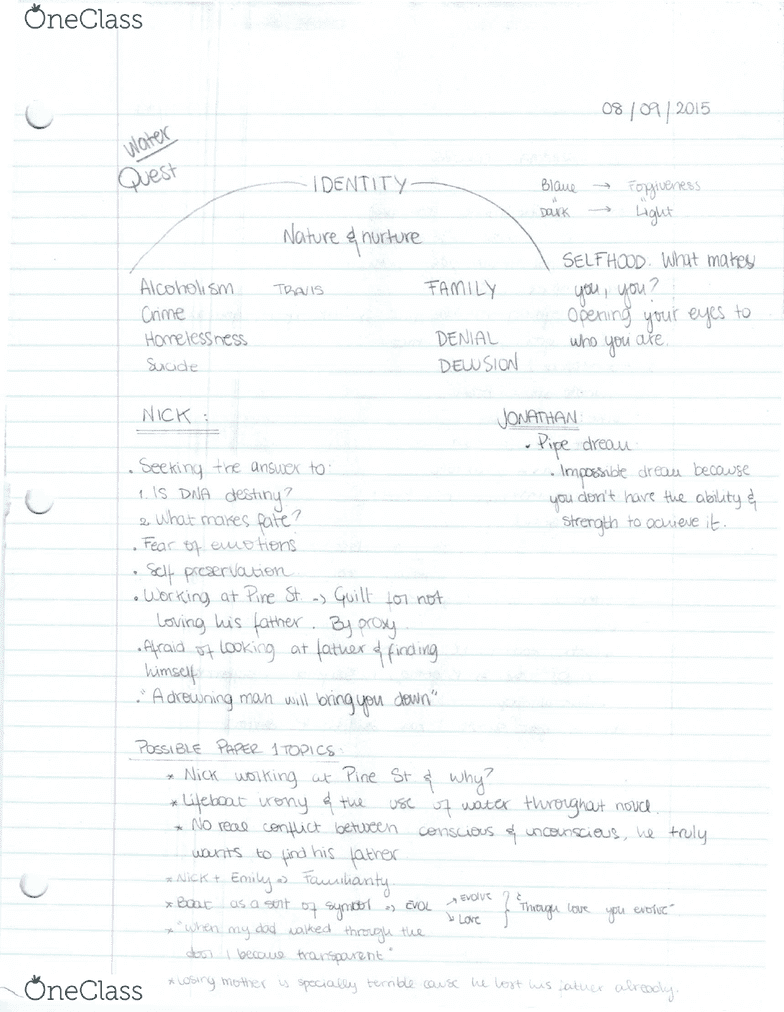 OneClass
08/09/2015
Water
Quest
IDENTITY
Blame → Forgiveness
" "
DARK → Light
Nature & nurture
SELFHOOD. What makes
you, you?
Opening your eyes to
who you are.
Alcoholism TRAVIS FAMILY
Crime
Homelessness DENIAL
Suicide DELUSION
NICK:
JONATHAN:
• Pipe dream
• Impossible dream because
you don't have the ability &
strength to achieve it.
• Seeking the answer to:
1. IS DNA destiny?
2. What makes fate?
• Fear of emotions
• Self preservation
• Working at Pine St → Guilt for not
loving his father. By proxy
• Afraid of looking at father & finding
himself
• "A drowning man will bring you down"
POSSIBLE PAPER 1 TOPICS:
* Nick working at Pine St & why?
* Lifeboat irony & the use of water throughout novel.
* No real conflict between conscious & unconscious, he truly
wants to find his father
* NICK + Emily => Familiarity.
* Boat as a sort of symbol => EVOL → EVOLVE } "Through love you evolve"
↘ Love
* "when my dad walked through the
door I became transparent"
* Losing mother is specially terrible cause he lost his father already.
OneClass